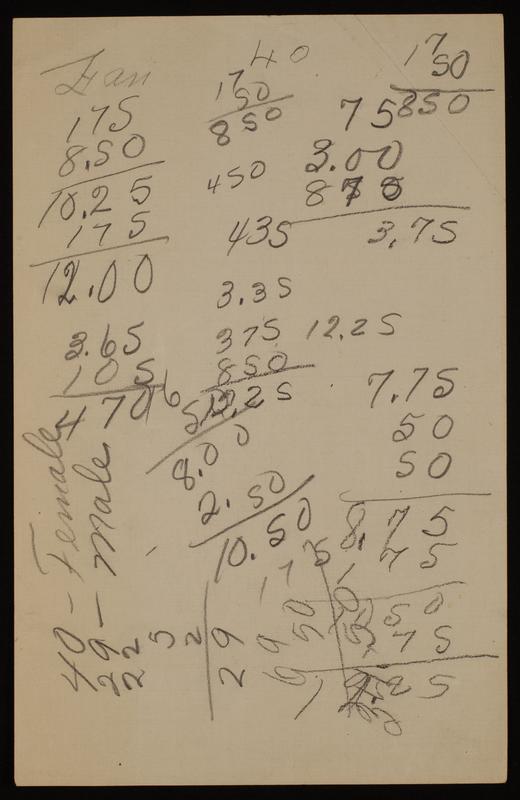 Jan
175
8.50
10.25
175
12.00
3.65
105
470
40
17
50
850
450
435
3.35
375
850
12.25
8.00
2.50
10.50
17
50
850
75
3.00
3.75
12.25
7.75
50
50
8.75
175
50
75
25
40 - Female
29 - Male
22
5
2
29
29
175